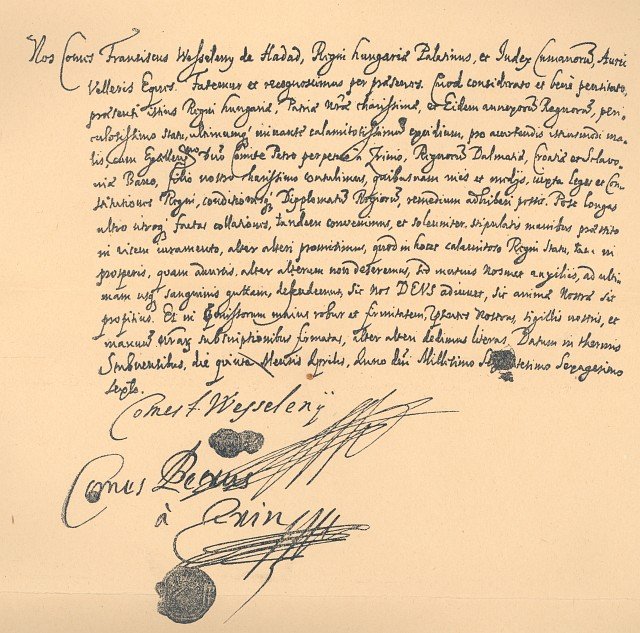 Nos Comes Franciscus Wesseleny de Hadad, Regni hungariæ Palatinus, et Iudex Cumanorũ, Aurei
Velleris Eques. Fatemur et recognoscimus per præsentes. Quod considerato et benè pensitato,
præsenti istius Regni hungariæ, Patriæ Nræ charissimæ, et Eidem annexorum Regnorum, peri-
culosissimo statu, ultimumq minante calamitosissimũ excidium, pro avertendis istiusmodi ma-
lis, cum Dno Comite Petro perpetuo à Zrinio, Regnorum Dalmatiæ, Croatiæ et Sclavo-
niæ Bano, filio nostro charissimo contulimus, quibusnam viis et modis, iuxta leges et Con-
stitutiones Regni, conditionesq Diplomatũ Regiorũ, remedium adhiberi possit. Post longas
ultro utroq factas collationes, tandem convenimus, et solemniter, stipulatis manibus præstito
in vicem iuramento, alter alteri promittimus, quod in hocce calamitoso Regni statu, tam in
prosperis, quam adversis, alter alterum non deseremus, sed mutuis auxiliis, ad ulti-
mam usq sanguinis guttam, defendemus, sic nos DEUS adiuvet, sic animæ Nostræ sit
propitius. Et in maius robur et firmitatem, litteras nostras, sigillis nostris, et
manuum subscriptionibus firmatas, alter alteri dedimus literas. Datum in thermis
Stubnensibus, die quinta Mensis Aprilis, Anno Dni Millesimo Sexagesimo
sexto.
Comes f. Wesselenÿ
Comes Petrus
à Zrin